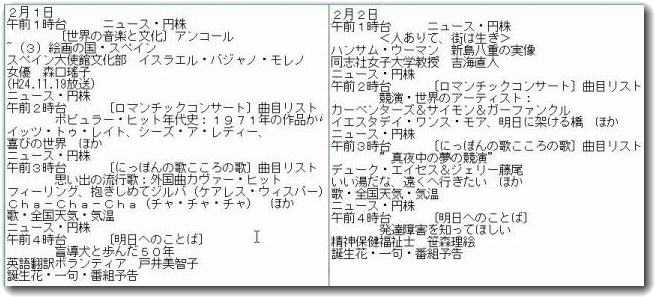 2月1日
午前1時台　　ニュース・円株
〔世界の音楽と文化〕アンコール
~（3）絵画の国・スペイン
スペイン大使館文化部　イスラエル・バジャノ・モレノ
女優　森口瑤子
(H24.11.19放送)
ニュース・円株
午前2時台　　〔ロマンチックコンサート〕曲目リスト
ポピュラー・ヒット年代史：1971年の作品から
イッツ・トゥ・レイト、シーズ・ア・レディー、
喜びの世界　ほか
ニュース・円株
午前3時台　　〔にっぽんの歌こころの歌〕曲目リスト
思い出の流行歌：外国曲カヴァー・ヒット
フィーリング、抱きしめてジルバ（ケアレス・ウィスパー）
Cha-Cha-Cha（チャ・チャ・チャ）　ほか
歌・全国天気・気温
ニュース・円株
午前4時台　　〔明日へのことば〕
盲導犬と歩んだ50年
英語翻訳ボランティア　戸井美智子
誕生花・一句・番組予告
2月2日
午前1時台　　ニュース・円株
＜人ありて、街は生き＞
ハンサム・ウーマン　新島八重の実像
同志社女子大学教授　吉海直人
ニュース・円株
午前2時台　　〔ロマンチックコンサート〕曲目リスト
競演・世界のアーティスト：
カーペンターズ＆サイモン＆ガーファンクル
イエスタデイ・ワンス・モア、明日に架ける橋　ほか
ニュース・円株
午前3時台　　〔にっぽんの歌こころの歌〕曲目リスト
"真夜中の夢の競演"
デューク・エイセス＆ジェリー藤尾
いい湯だな、遠くへ行きたい　ほか
歌・全国天気・気温
ニュース・円株
午前4時台　　〔明日へのことば〕
発達障害を知ってほしい
精神保健福祉士　笹森理絵
誕生花・一句・番組予告